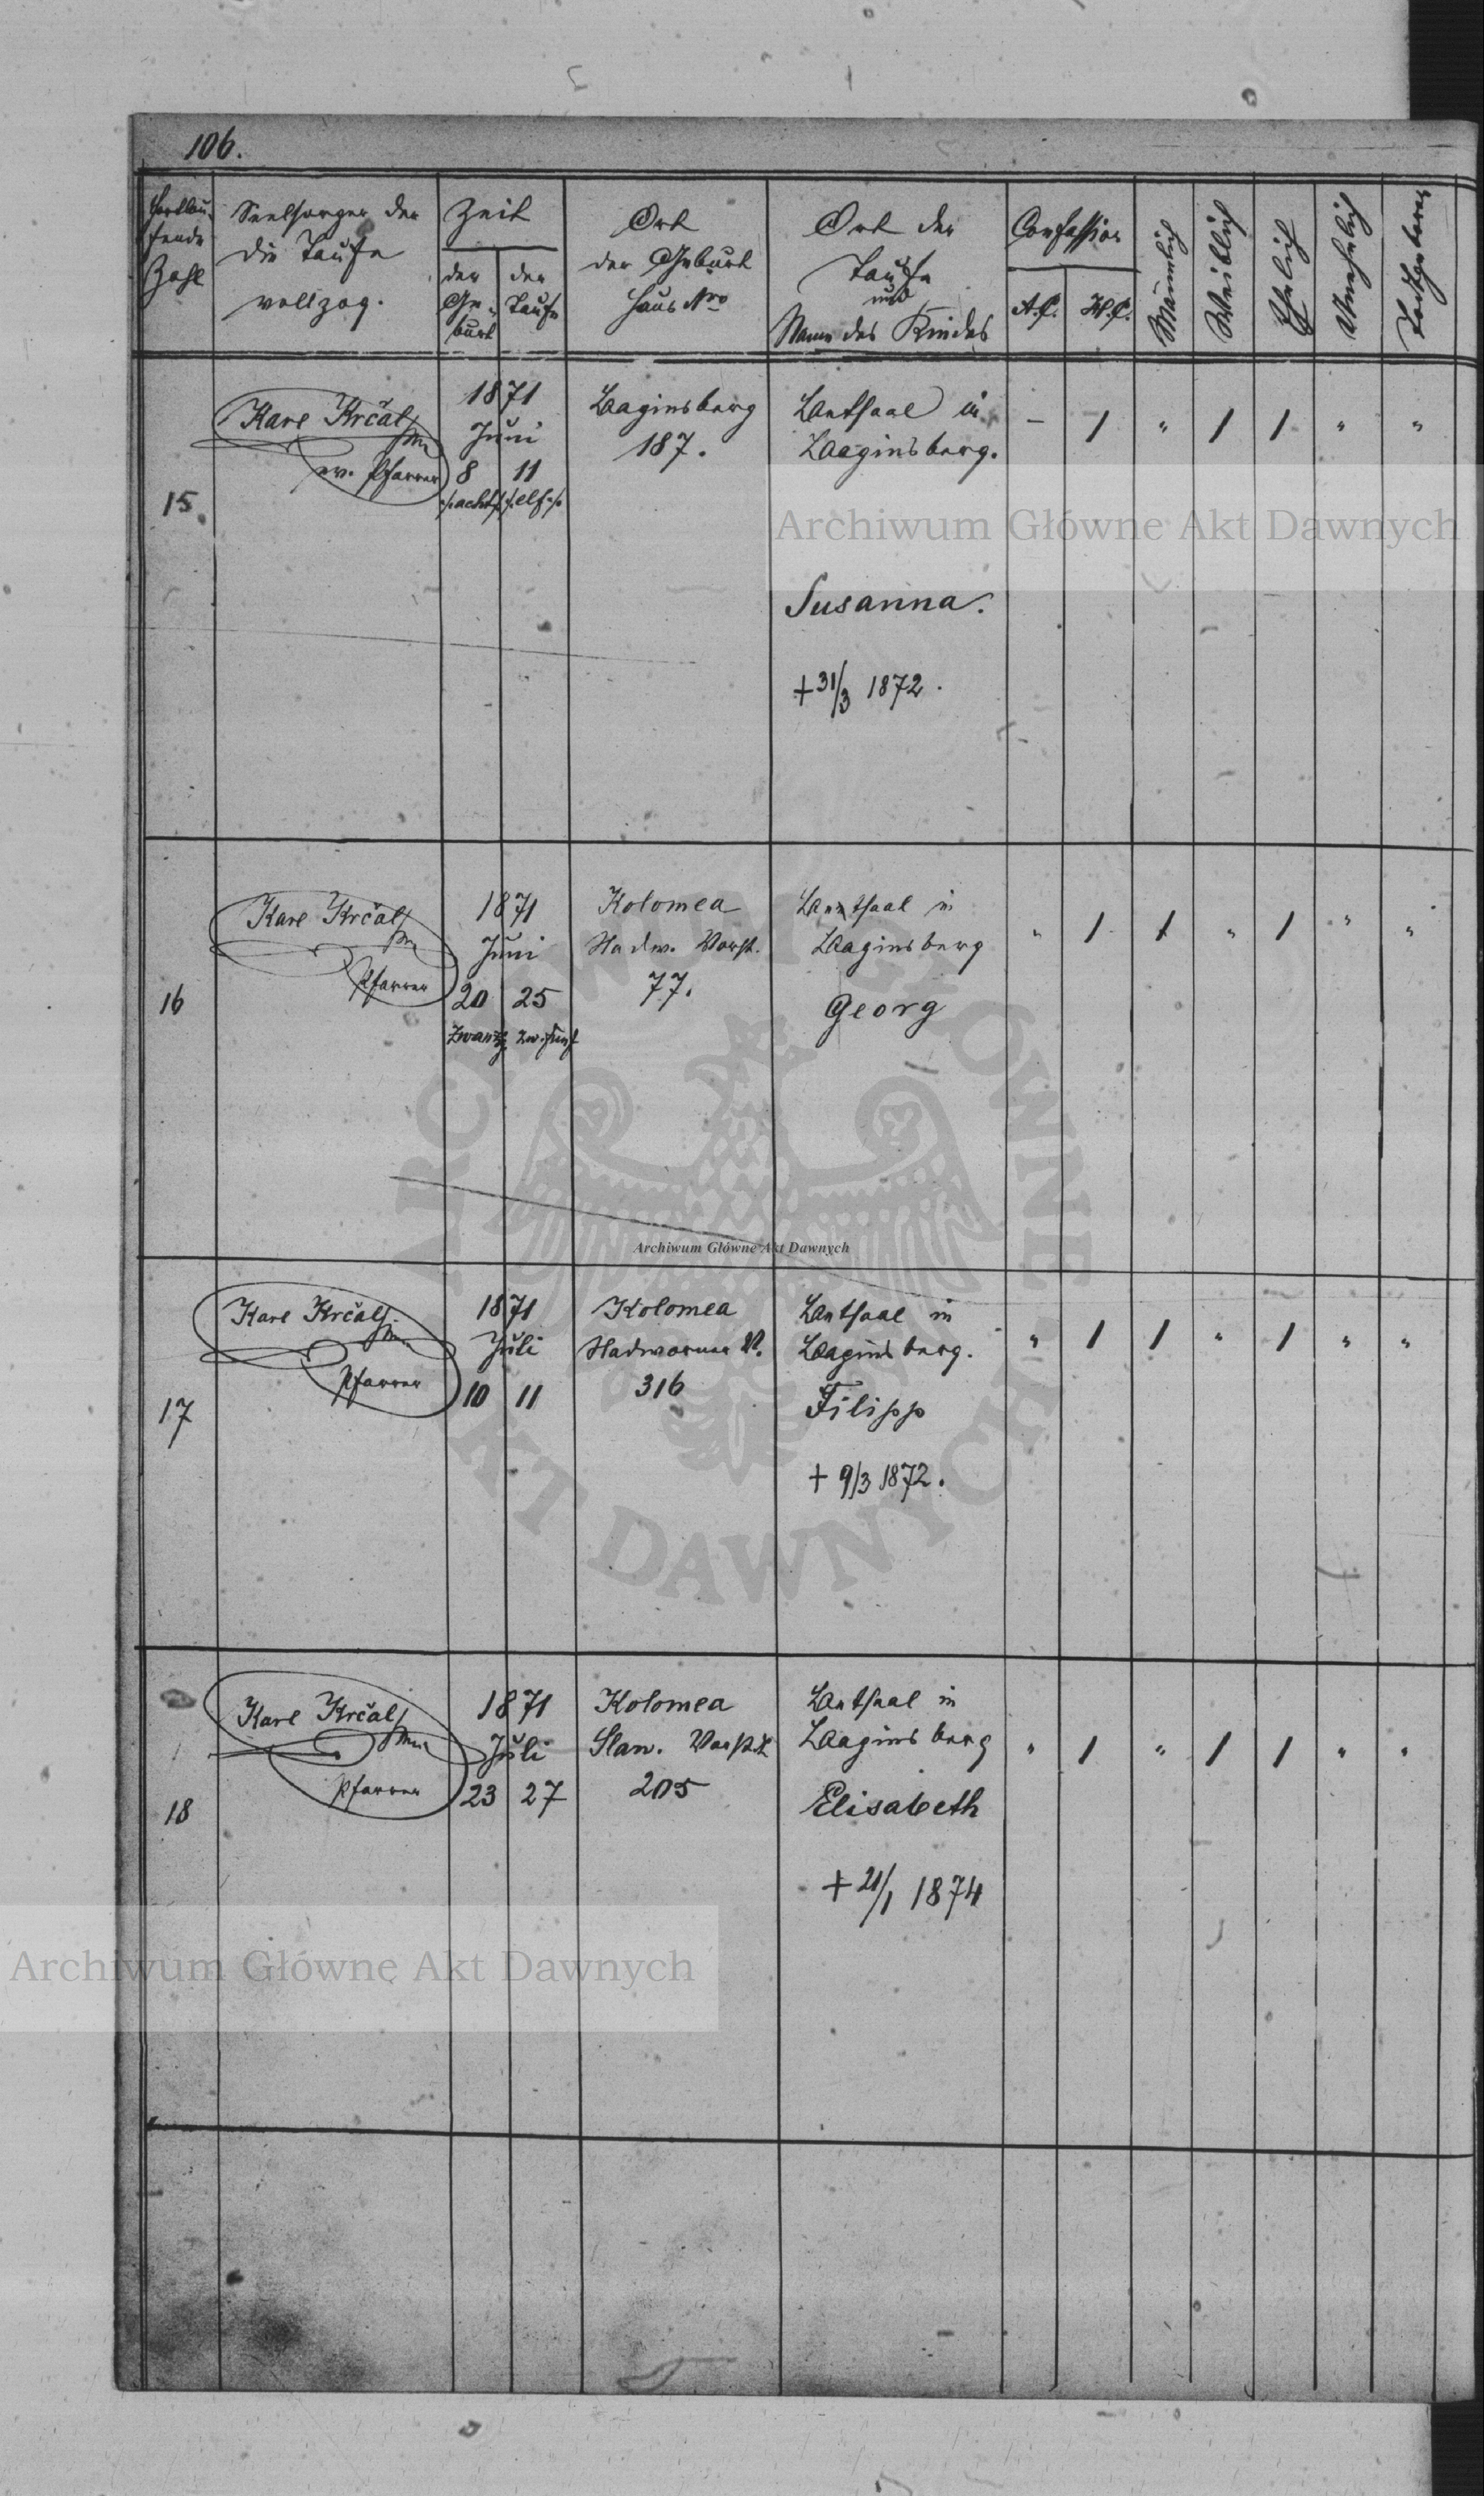 106.
Fortlau-
fende
Zahl
Seelsorger der
die Taufe
vollzog.
Zeit
der
Ge-
burt
der
Taufe
Ort
der Geburt
Haus Nro
Ort der
Taufe
und
Name des Kindes
Confession
A.C.
H.C.
Männlich
Weiblich
Ehelich
Unehelich
Todtgeboren
15.
Karl Krčal
ev. Pfarrer
1871
Juni
8 11
./.acht/. /.elf./.
Baginsberg
187.
Betsaal in
Baginsberg.
Susanna.
+ 31/3 1872.
- / " / / " "
16
Karl Krčal
Pfarrer
1871
Juni
20 25
Kolomea
Nadw. Vorst.
77.
Betsaal in
Baginsberg
Georg
" / / " / " "
17
Karl Krčal
Pfarrer
1871
Juli
10 11
Kolomea
Nadwornaer V.
316
Betsaal in
Baginsberg.
Filipp
+ 9/3 1872.
" / / " / " "
18
Karl Krčal
Pfarrer
1871
Juli
23 27
Kolomea
Slan. Vorst.
205
Betsaal in
Baginsberg
Elisabeth
+ 21/1 1874
" / " / / " "
Archiwum Główne Akt Dawnych
Archiwum Główne Akt Dawnych
Archiwum Główne Akt Dawnych
ARCHIWUM GŁÓWNE AKT DAWNYCH